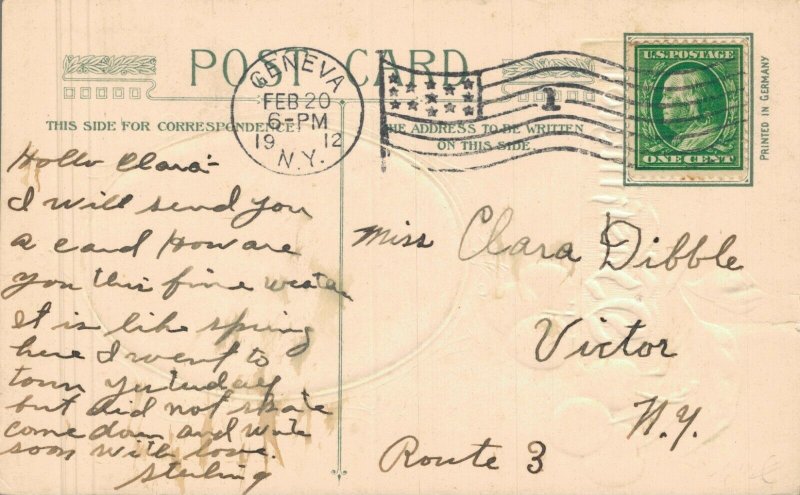 POST CARD
GENEVA
FEB 20
6-PM
19 12
N.Y.
1
U.S. POSTAGE
ONE CENT
PRINTED IN GERMANY
THIS SIDE FOR CORRESPONDENCE
THE ADDRESS TO BE WRITTEN
ON THIS SIDE.
Hello Clara-
I will send you
a card How are
you this fine
It is like spring
here I went to
town yesterday
but did not skate
come down and write
soon with love.
Sterling
Miss Clara Dibble
Victor
N.Y.
Route 3